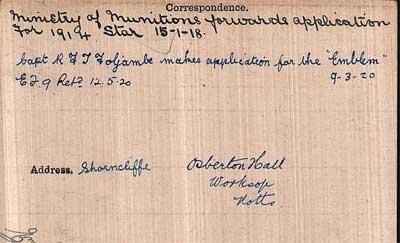 Correspondence.
Ministry of Munitions forwards application
for 1914 Star 15-1-18.
Capt R F T Foljambe makes application for the "Emblem"
E F 9 Retd 12.5.20 9-3-20
Address. Shorncliffe Osberton Hall
Worksop
Notts.